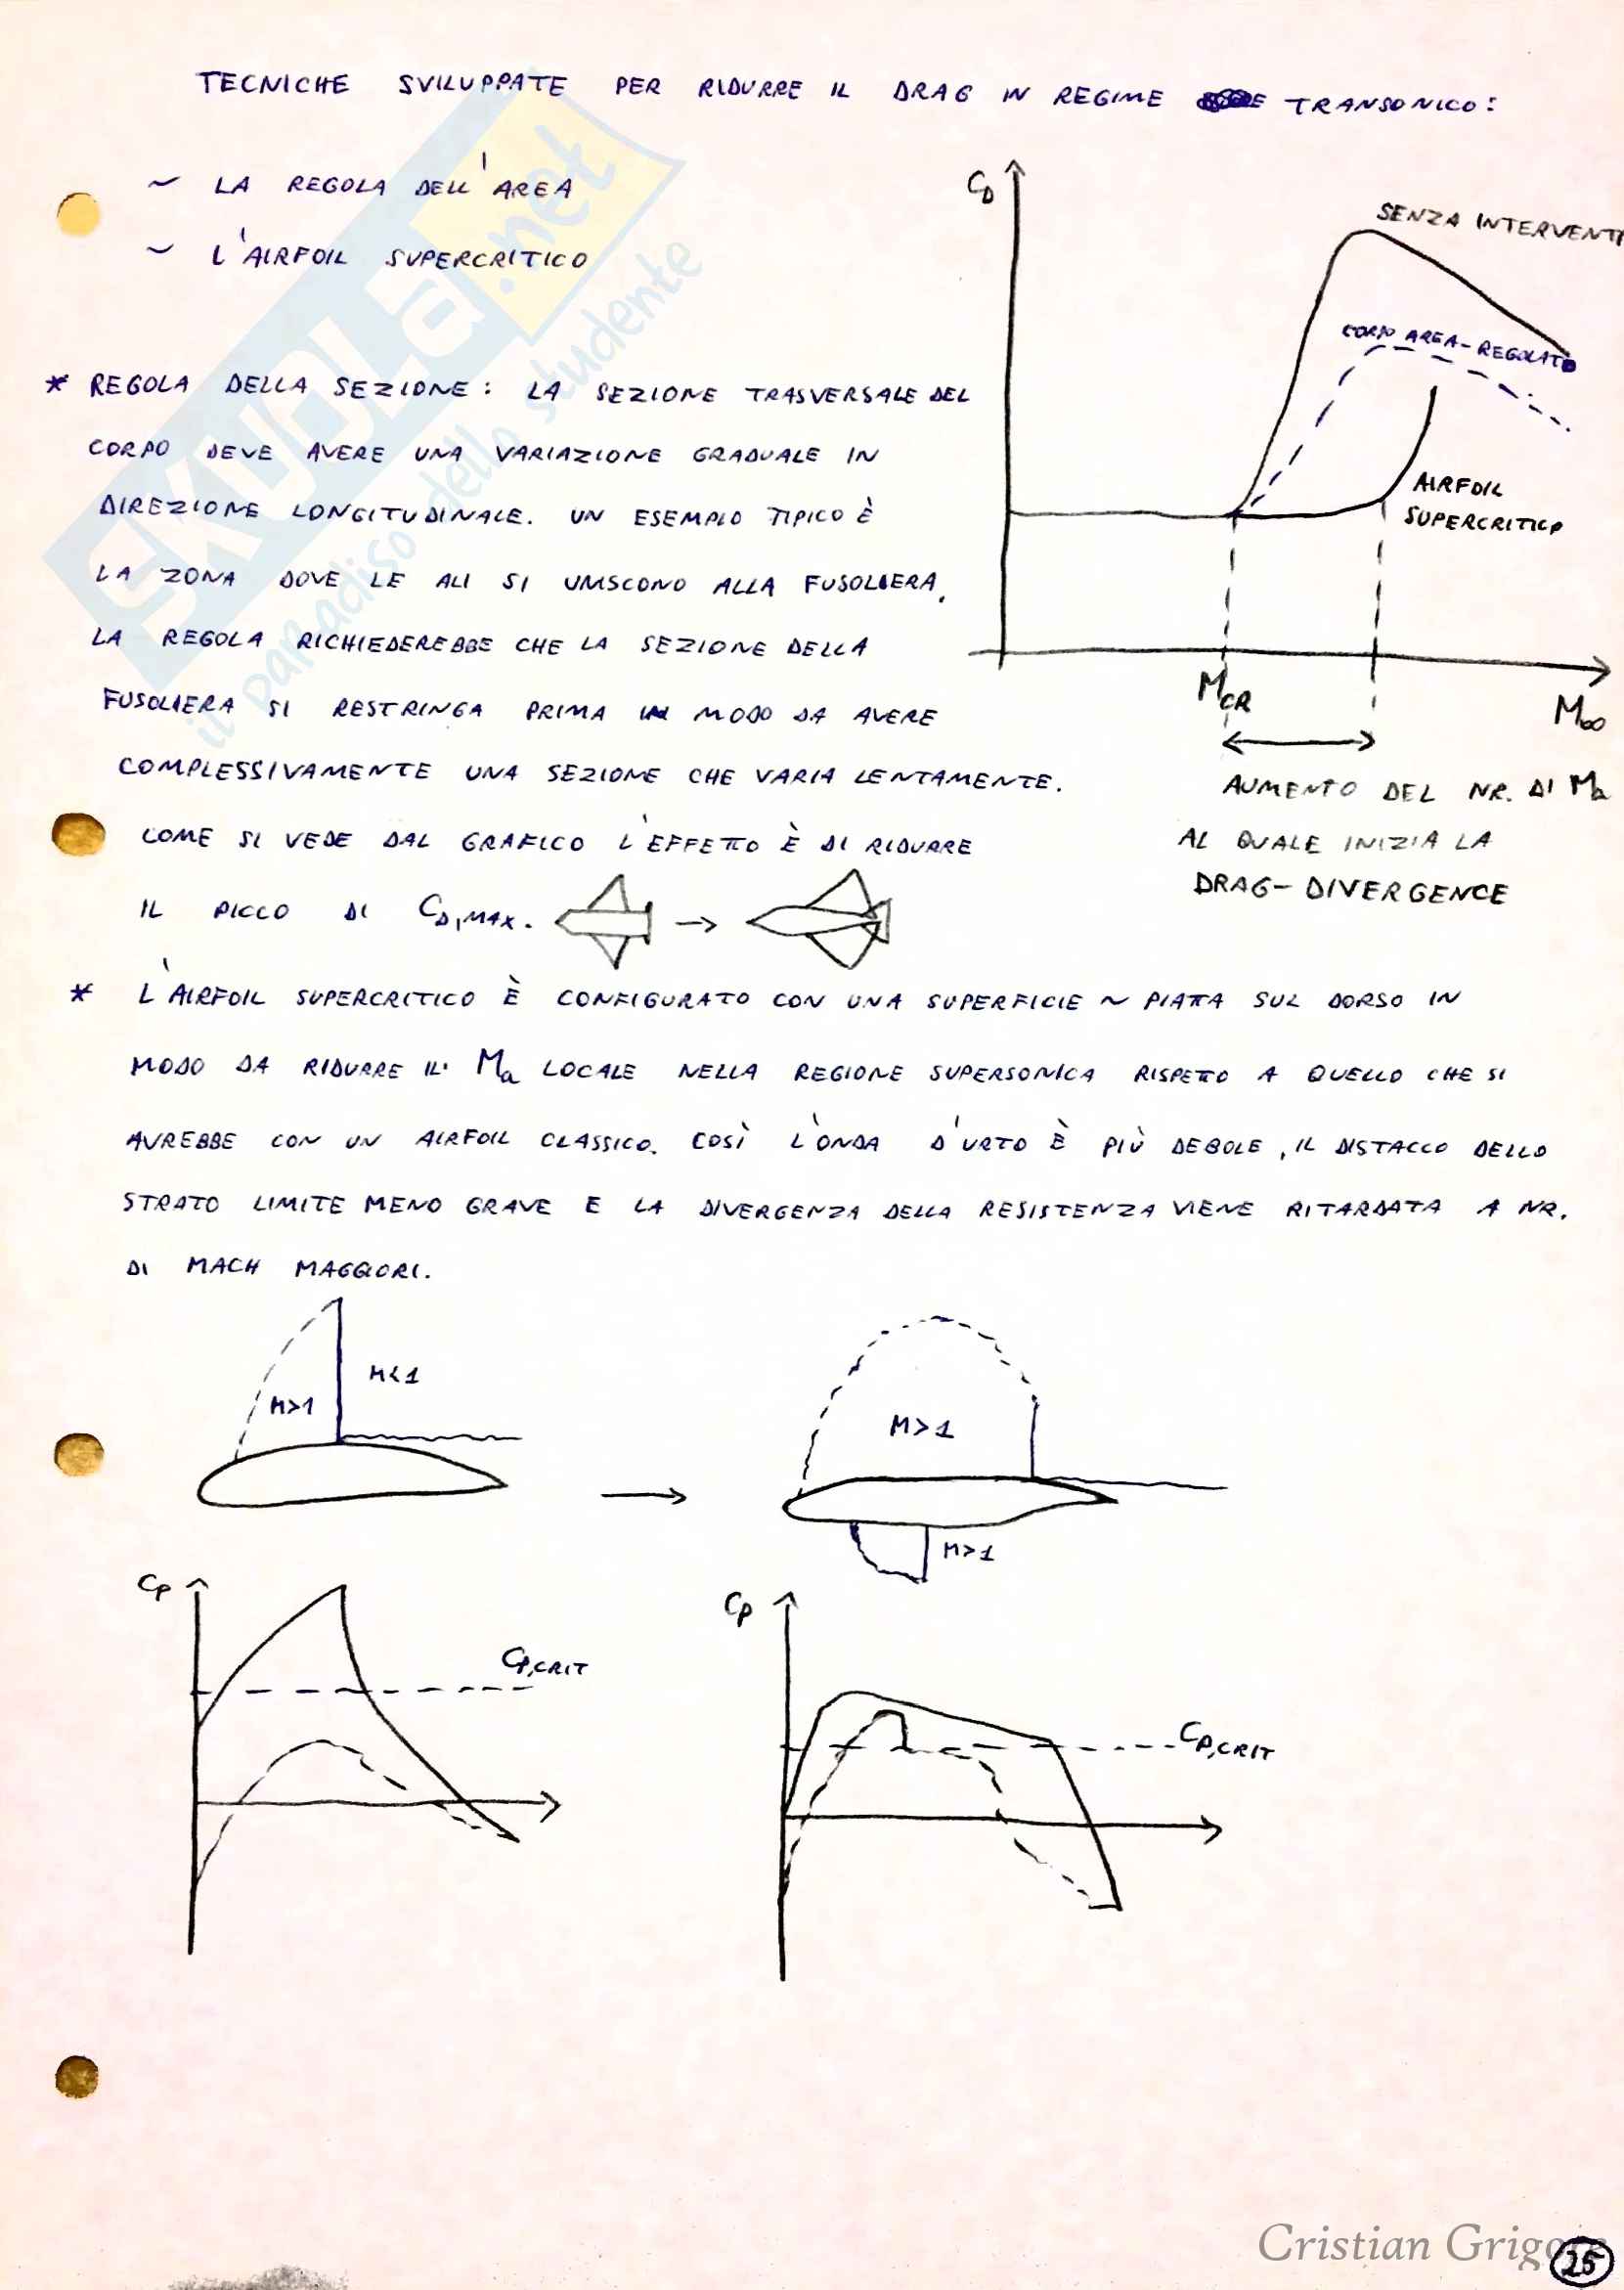 TECNICHE SVILUPPATE PER RIDURRE IL DRAG IN REGIME TRANSONICO:
~ LA REGOLA DELL'AREA
~ L'AIRFOIL SUPERCRITICO
C_D
SENZA INTERVENTI
CORPO AREA-REGOLATO
AIRFOIL
SUPERCRITICO
M_CR
M∞
AUMENTO DEL NR. DI Ma
AL QUALE INIZIA LA
DRAG-DIVERGENCE
* REGOLA DELLA SEZIONE: LA SEZIONE TRASVERSALE DEL
CORPO DEVE AVERE UNA VARIAZIONE GRADUALE IN
DIREZIONE LONGITUDINALE. UN ESEMPIO TIPICO È
LA ZONA DOVE LE ALI SI UNISCONO ALLA FUSOLIERA.
LA REGOLA RICHIEDEREBBE CHE LA SEZIONE DELLA
FUSOLIERA SI RESTRINGA PRIMA IN MODO DA AVERE
COMPLESSIVAMENTE UNA SEZIONE CHE VARIA LENTAMENTE.
COME SI VEDE DAL GRAFICO L'EFFETTO È DI RIDURRE
IL PICCO DI C_D,MAX. →
* L'AIRFOIL SUPERCRITICO È CONFIGURATO CON UNA SUPERFICIE ~ PIATTA SUL DORSO IN
MODO DA RIDURRE IL Ma LOCALE NELLA REGIONE SUPERSONICA RISPETTO A QUELLO CHE SI
AVREBBE CON UN AIRFOIL CLASSICO. COSÌ L'ONDA D'URTO È PIÙ DEBOLE, IL DISTACCO DELLO
STRATO LIMITE MENO GRAVE E LA DIVERGENZA DELLA RESISTENZA VIENE RITARDATA A NR.
DI MACH MAGGIORI.
M>1
M<1
→
M>1
M>1
Cp
Cp,CRIT
Cp
Cp,CRIT
SKUOLA.net
il paradiso dello studente
Cristian Grigore
25